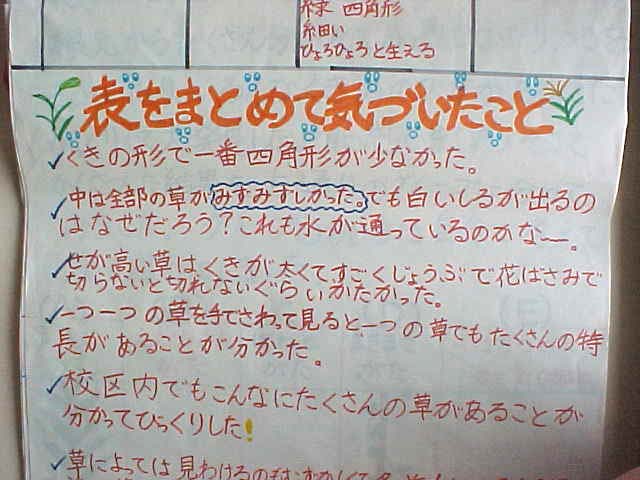 緑 四角形
細い
ひょろひょろと生える
表をまとめて気づいたこと
くきの形で一番四角形が少なかった。
中は全部の草がみずみずしかった。でも白いしるが出るの
はなぜだろう？これも水が通っているのかな〜。
せが高い草はくきが太くてすごくじょうぶで花ばさみで
切らないと切れないぐらいかたかった。
一つ一つの草を手でさわって見ると一つの草でもたくさんの特
長があることが分かった。
校区内でもこんなにたくさんの草があることが
分かってびっくりした！
草によっては見わけるのもむずかしくて